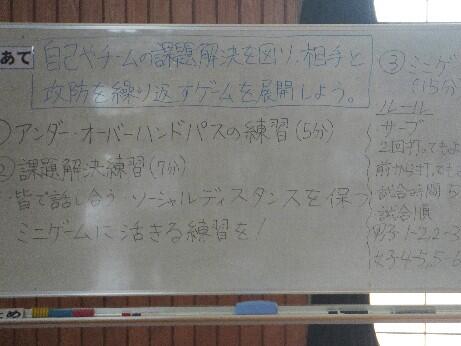 めあて
自己やチームの課題解決を図り、相手と
攻防を繰り返すゲームを展開しよう。
①アンダー・オーバーハンドパスの練習(5分)
②課題解決練習(7分)
皆で話し合う ソーシャルディスタンスを保つ
ミニゲームに活きる練習を!
③ミニゲ
(15分)
ルール
サーブ
2回打ってもよ
前から打ってもよ
試合時間 5
試合順
1-2, 2-3
3-4, 5-5, 6
まとめ